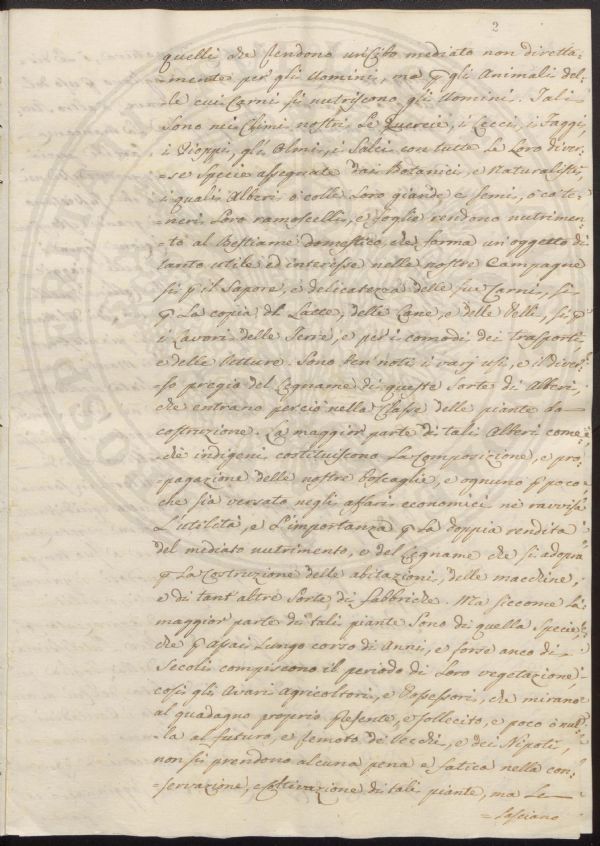 2
quelli che rendono un cibo mediato non diretta-
=mente per gli Uomini, ma p gli Animali del-
=le cui Carni si nutriscono gli Uomini. Tali
Sono nei Climi nostri Le Quercie, i Lecci, i Faggi,
i Pioppi, gli Olmi, i Salci con tutte Le Loro diver-
=se Specie assegnate dai Botanici, e Naturalisti,
i quali Alberi o colle Loro giande, e Semi, o co te-
=neri Loro ramoscelli, e foglie rendono nutrimen-
=to al Bestiame domestico, che forma un'oggetto di
tanto utile ed interesse nelle nostre Campagne
si p il Sapore, e delicatezza delle sue Carni, si
p La copia del Latte, delle Lane, e delle Pelli, si p
i Lavori delle Terre, e per i comodi dei trasporti,
e delle Vetture. Sono ben noti i varj usi, e il diver-
=so pregio del Legname di queste Sorte di Alberi,
che entrano perciò nella Classe delle piante da
costruzione. La maggior parte di tali Alberi come-
chè indigeni, costituiscono La Composizione, e pro-
=pagazione delle nostre Boscaglie, e ognuno p poco
che sia versato negli affari economici ne ravvisa
L'utilità, e L'importanza p La doppia rendita
del mediato nutrimento, e del Legname che si adopra
p La Costruzione delle abitazioni, delle macchine,
e di tant'altre Sorte di fabbriche. Ma siccome La
maggior parte di tali piante Sono di quella Specie
che p assai Lungo corso di Anni, e forse anco di
Secoli compiscono il periodo di Loro vegetazione,
così gli Avari Agricoltori, e Possessori, che mirano
al guadagno proprio presente, e sollecito, e poco o nul-
=la al futuro, e remoto de' Vecchi, e dei Nipoti,
non si prendono alcuna pena e fatica nella con-
=servazione, e coltivazione di tali piante, ma Le
=Lasciano